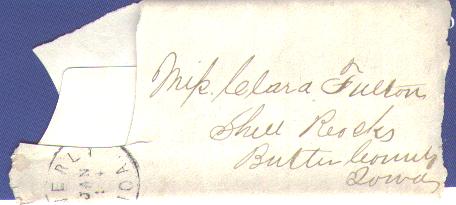 Miſs Clara Fulton
Shell Rocks
Butler County
Iowa
JAN